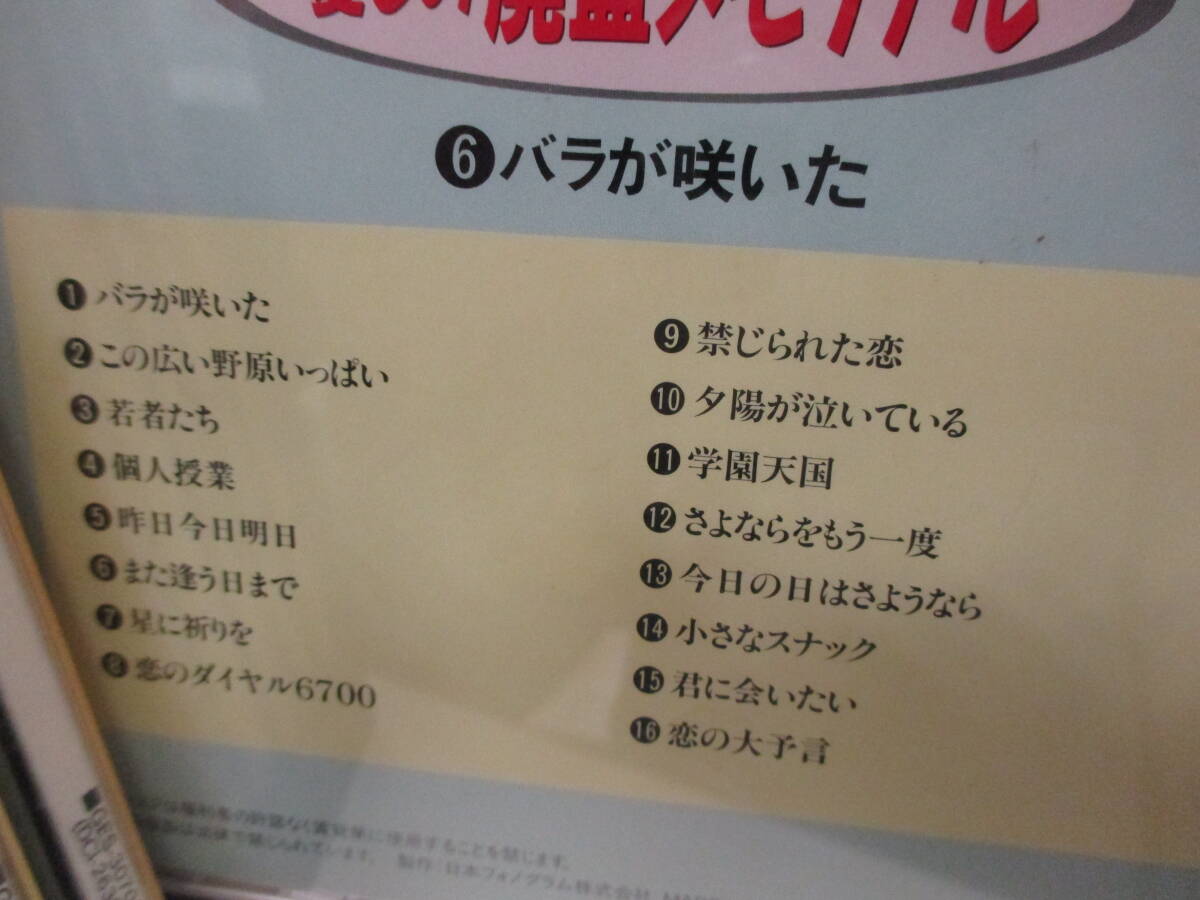 廃盤メモリアル
❻バラが咲いた
❶バラが咲いた
❷この広い野原いっぱい
❸若者たち
❹個人授業
❺昨日今日明日
❻また逢う日まで
❼星に祈りを
❽恋のダイヤル6700
❾禁じられた恋
❿夕陽が泣いている
⓫学園天国
⓬さよならをもう一度
⓭今日の日はさようなら
⓮小さなスナック
⓯君に会いたい
⓰恋の大予言
なく賃貸業に使用することを禁じます。
で禁じられています。 製作:日本フォノグラム株式会社
■GES-3010